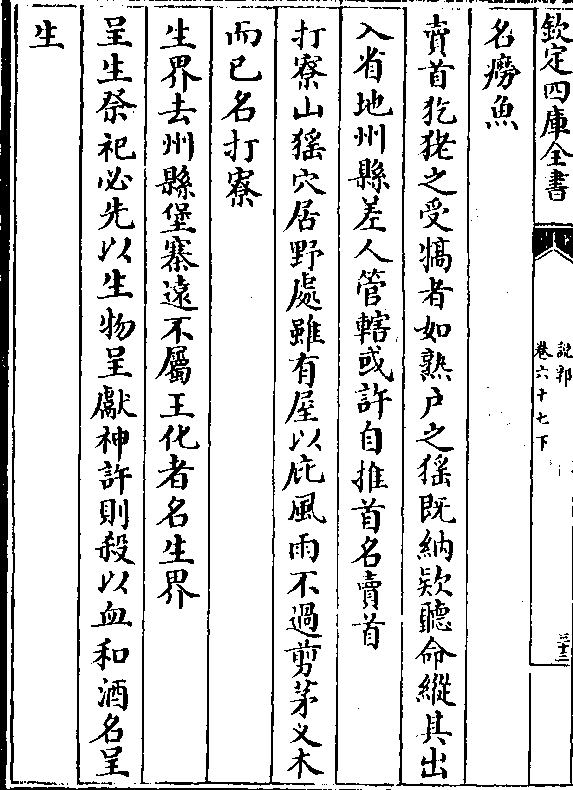 欽定四庫全書
說郛
卷六十七下
三十二
名癆魚
賣首犵狫之受犒者如熟户之猺既納欵聽命縱其出
入省地州縣差人管轄或許自推首名賣首
打寮山猺穴居野處雖有屋以庇風雨不過剪茅义木
而已名打寮
生界去州縣堡寨遠不屬王化者名生界
呈生祭祀必先以生物呈獻神許則殺以血和酒名呈
生